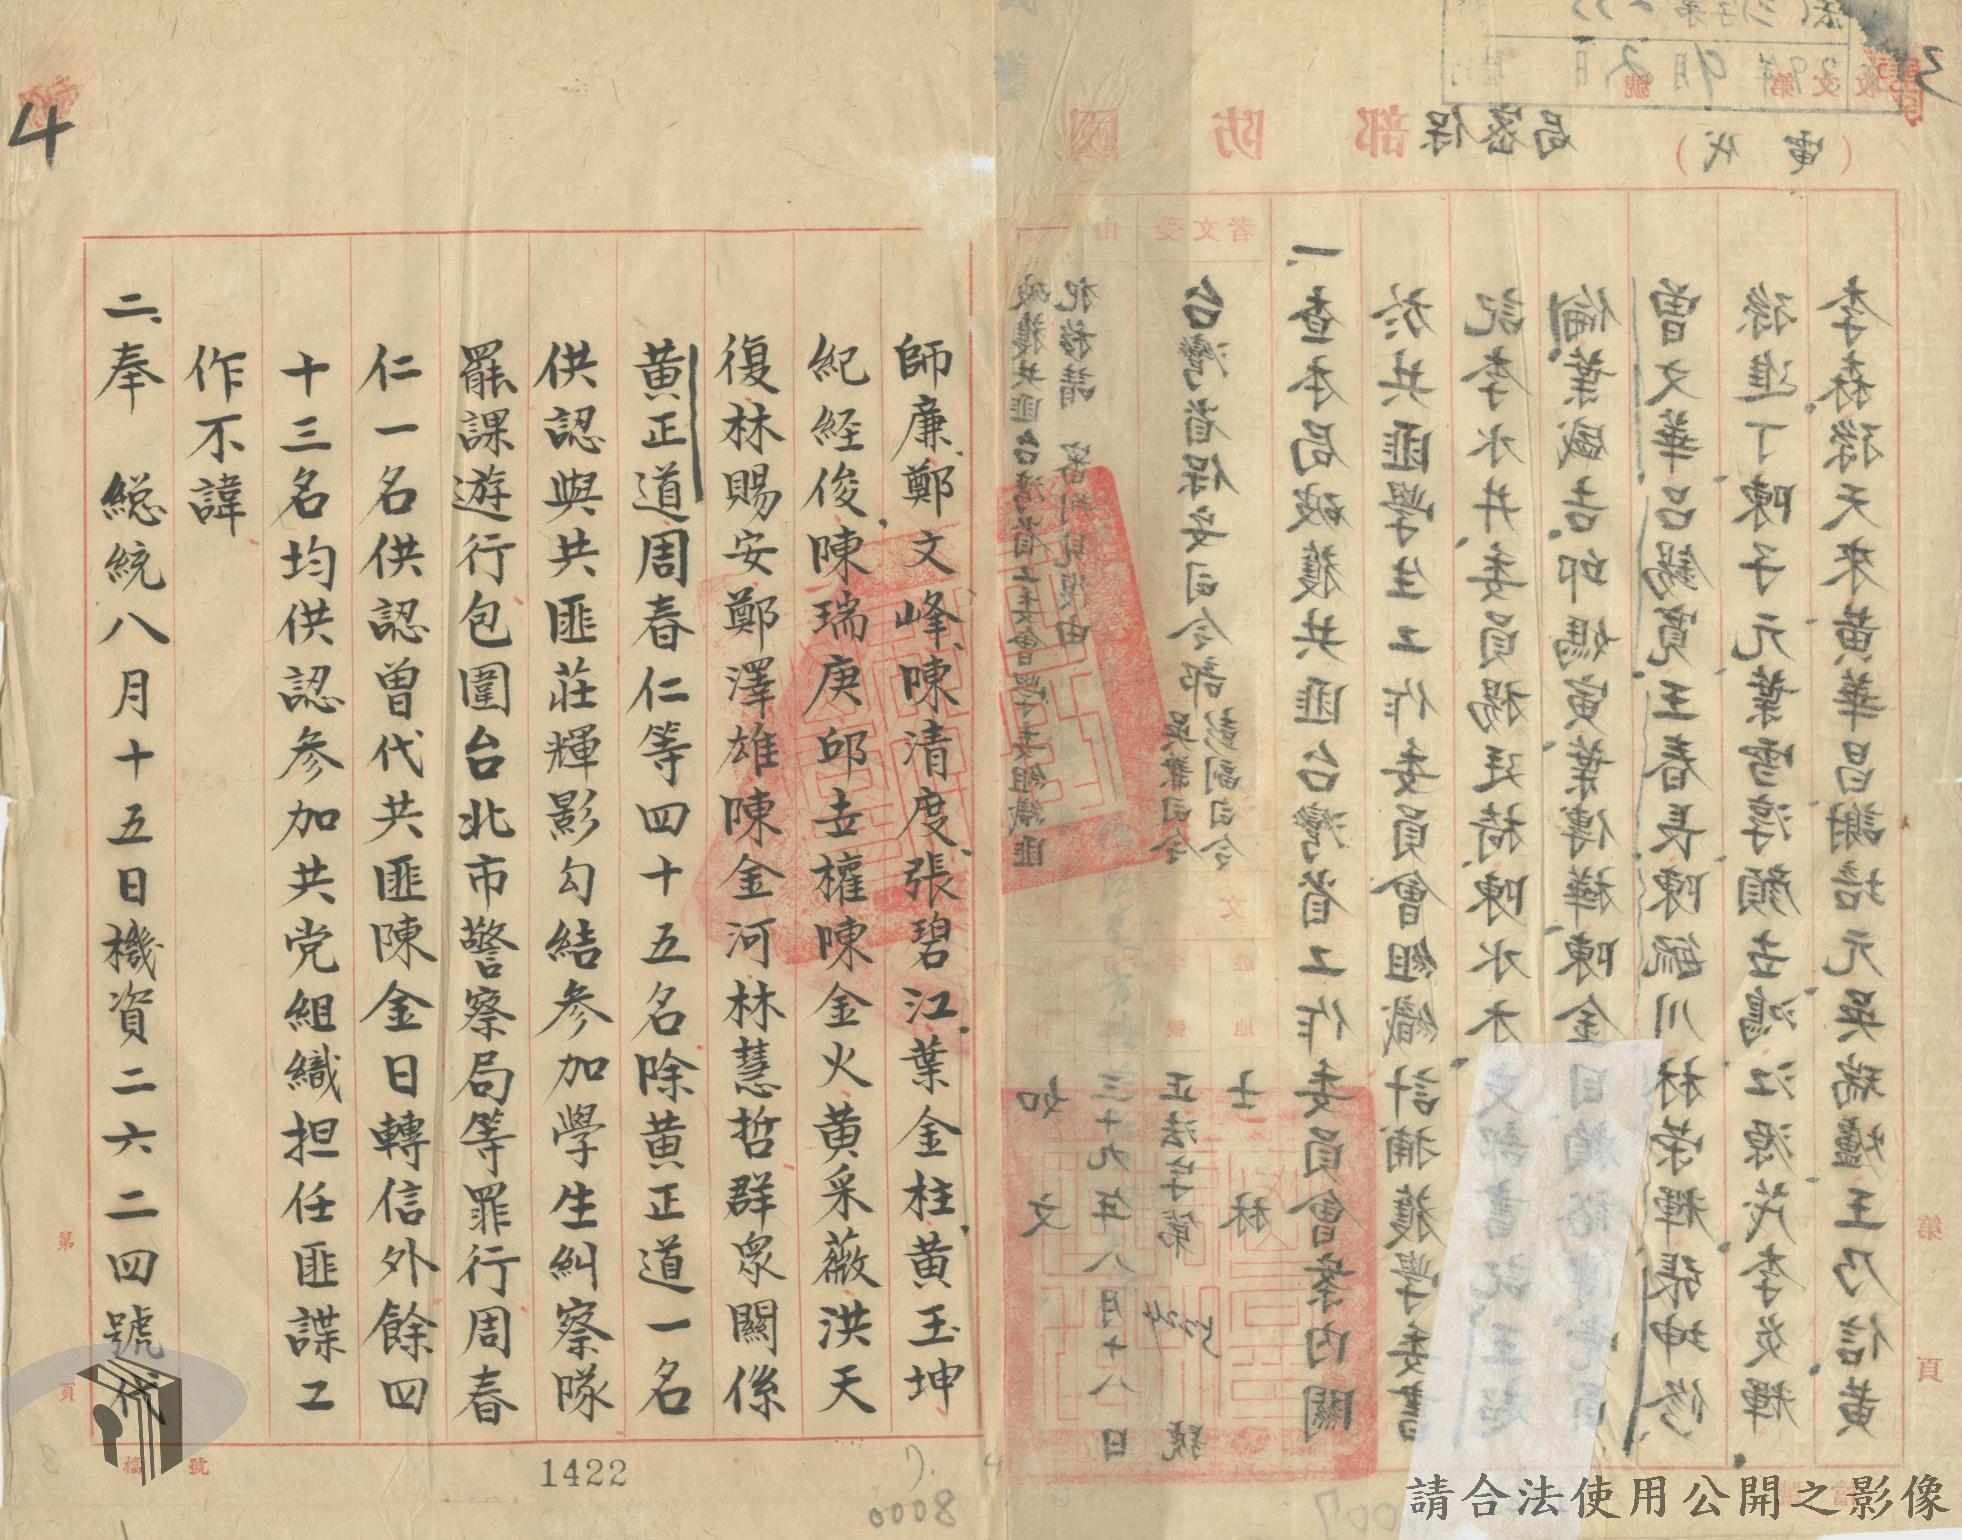 國防部保密局
（代電）
受文者
台灣省保安司令部
彭副司令
吳兼司令
破獲共匪台灣省工委會學委組織匪
犯移請 審判見復由
三十九年八月十八日
士林
如文
一、查本局破獲共匪台灣省工作委員會案內關
於共匪學生工作委員會組織計捕獲學委書
記李水井委員楊廷椅陳水木支部書記王超
倫葉盛吉邱媽寅葉傳樺陳金目
曾文華呂錫寬王春長陳毓川林榮輝張坤修
孫進丁陳子元葉雪淳顏世鴻江源茂李炎輝
李森孫天來黃華昌謝培元吳瑞爐王乃信黃
師廉鄭文峰陳清度張碧江葉金柱黃玉坤
紀經俊陳瑞庚邱垚權陳金火黃采薇洪天
復林賜安鄭澤雄陳金河林慧哲群眾關係
黃正道周春仁等四十五名除黃正道一名
供認與共匪莊輝影勾結參加學生糾察隊
罷課遊行包圍台北市警察局等罪行周春
仁一名供認曾代共匪陳金日轉信外餘四
十三名均供認參加共党組織担任匪諜工
作不諱
二、奉 總統八月十五日機資二六二四號代
第
頁
檔號
4
1422
0008
請合法使用公開之影像